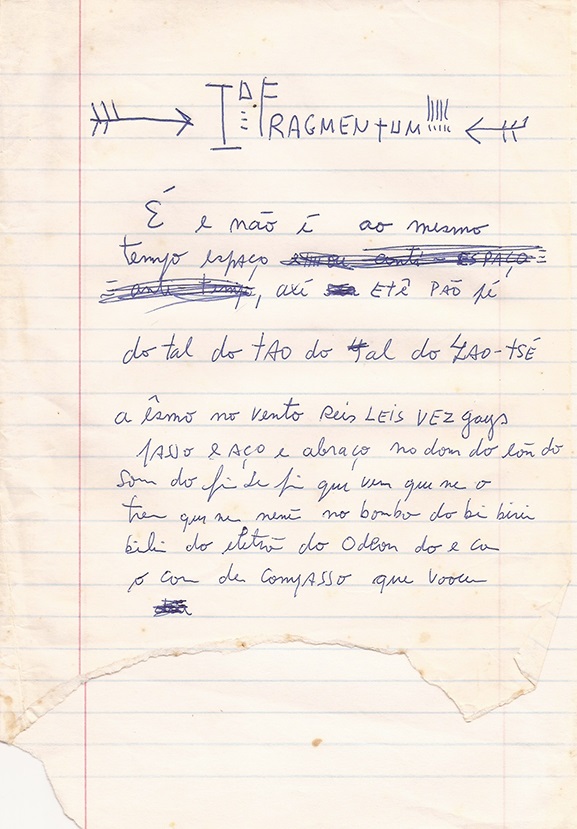 FRAGMENTUM
É e não é ao mesmo
tempo espaço
, axé Etê PÃO fé
do tal do TAO do tal do LAO-TSÉ
a êsmo no vento Reis LEIS VEZ gays
PASSO e AÇO e abraço no dom do do
som do fi que vem que ne o
trem que nenê no bombo do bi
bili do eletrõ do Odeon do e
o com de comPASSO que